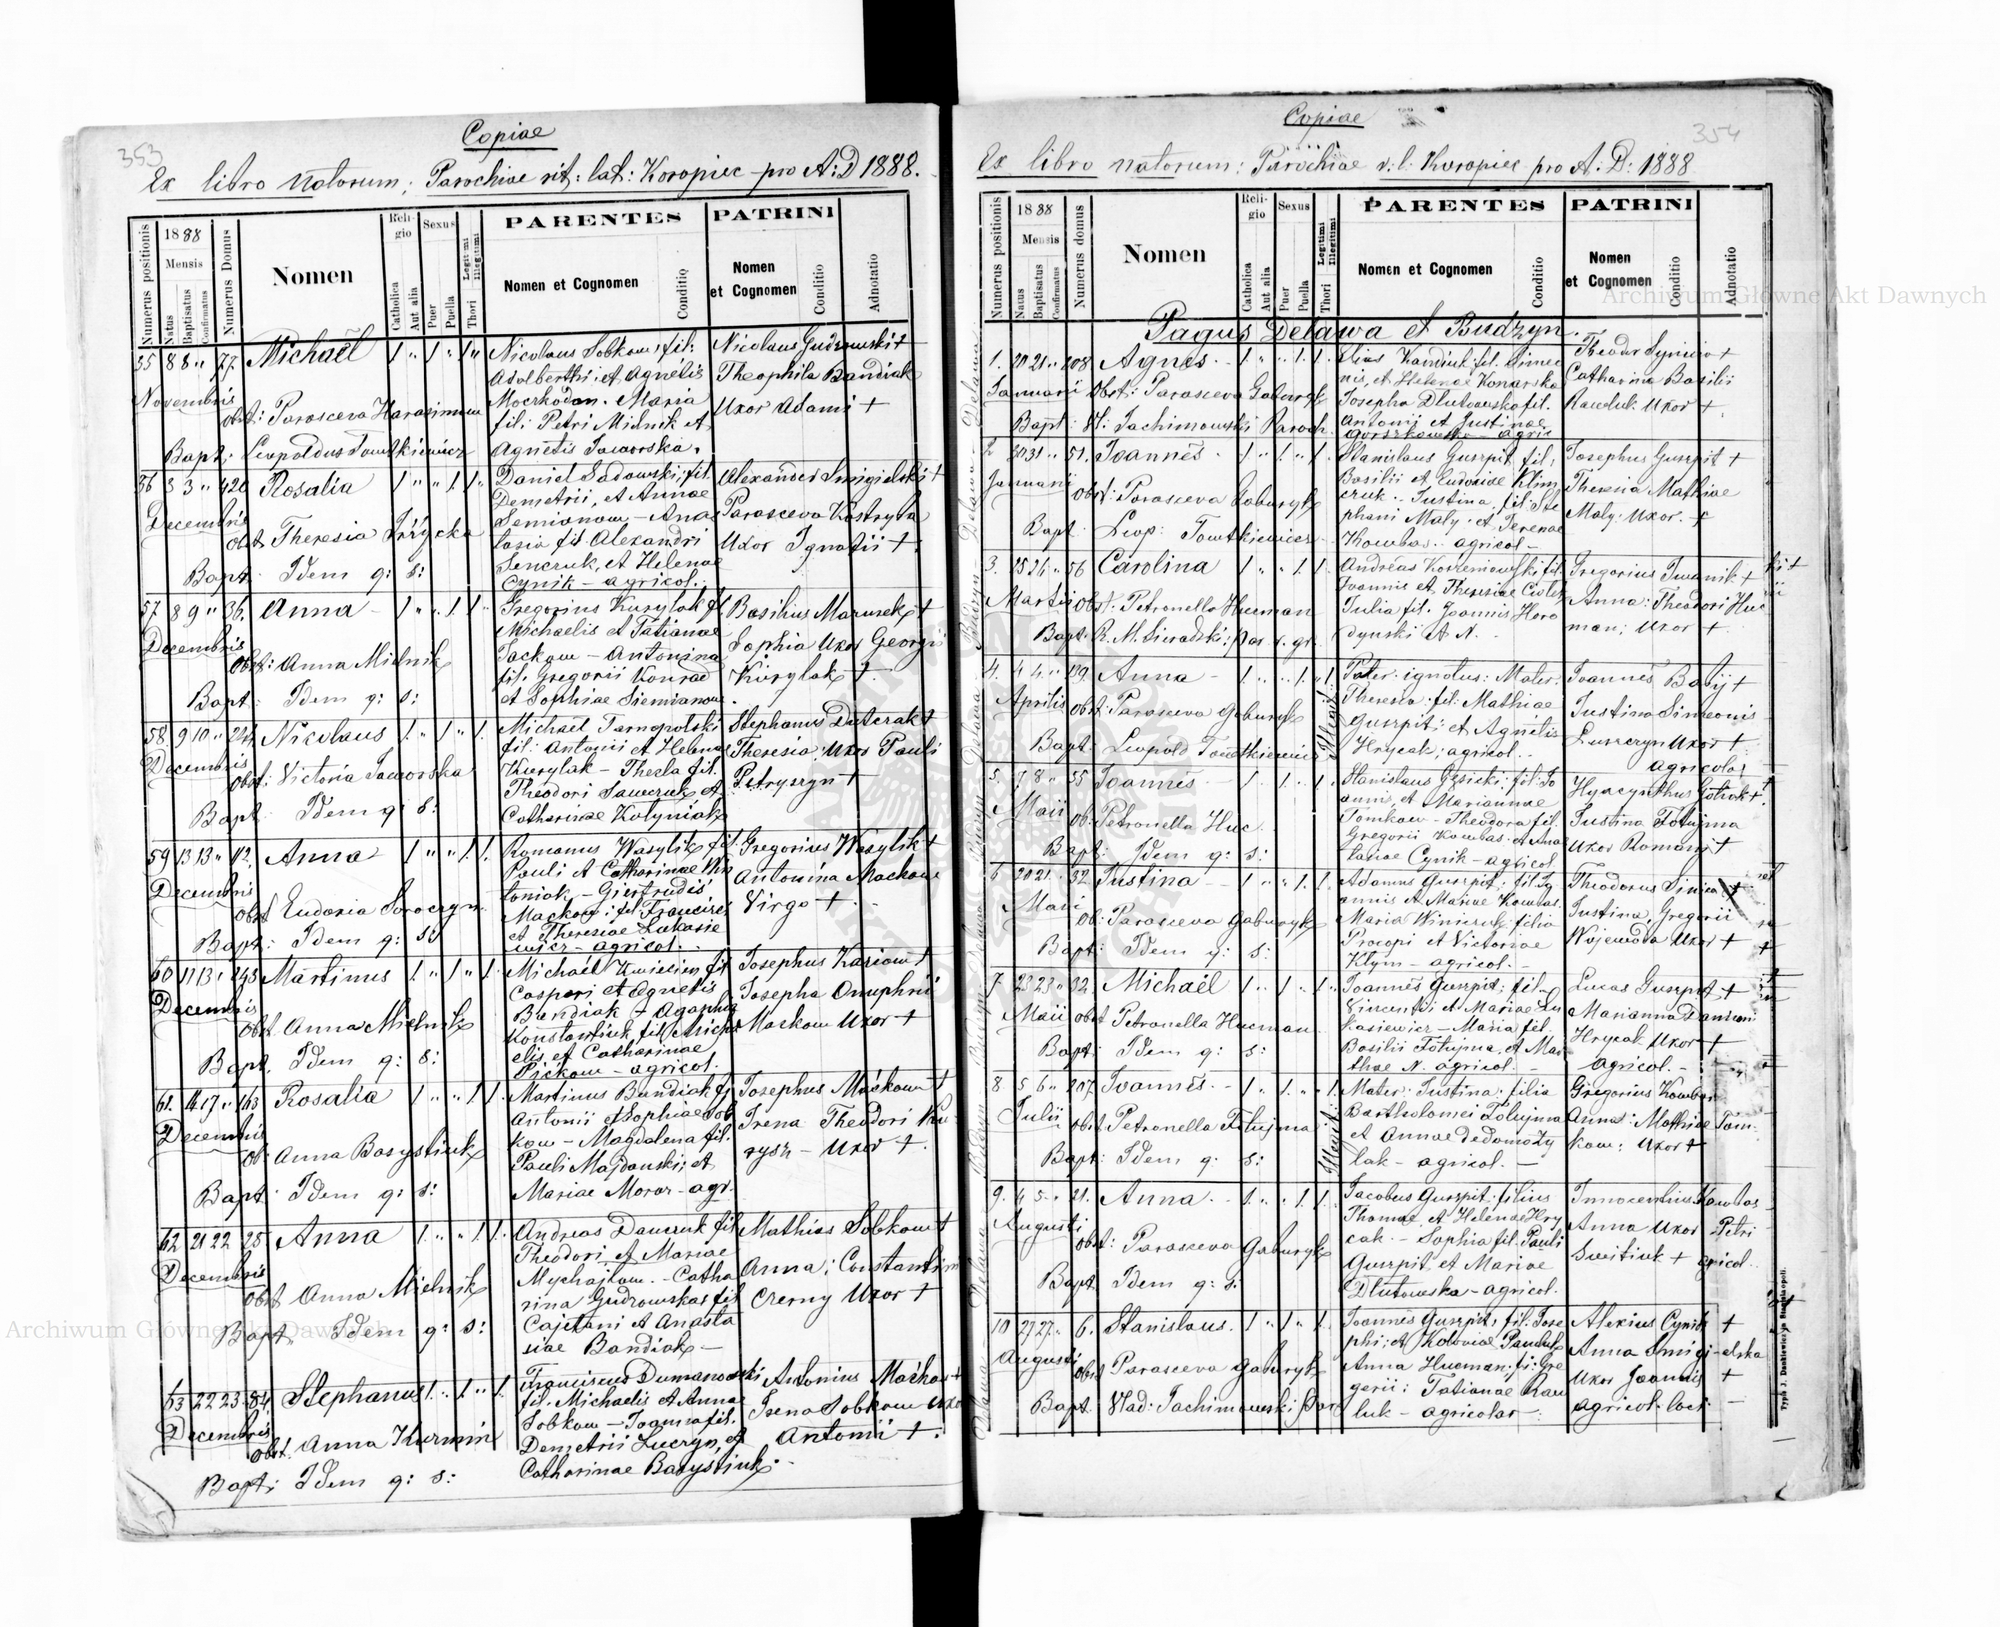 353
Copiae
Ex libro Natorum: Parochiae rit: lat: Koropiec pro A:D 1888.
Numerus positionis
1888
Mensis
Natus
Baptisatus
Confirmatus
Numerus Domus
Nomen
Religio
Catholica
Aut alia
Sexus
Puer
Puella
Thori
Legitimi
Illegitimi
PARENTES
Nomen et Cognomen
Conditio
PATRINI
Nomen
et Cognomen
Conditio
Adnotatio
55 8 8 " 77. Michaël 1 " 1 " 1 "
Novembris
Obst: Parasceva Harasimow
Bapt: Leopoldus Tomtkiewicz
Nicolaus Sobkow; fil:
Adalberthi; et Agnetis
Moczkodan. Maria
fil: Petri Mielnik et
Agnetis Jaworska.
Nicolaus Gudzowski +
Theophila Bandiak
Uxor Adami +
56 3 3 " 420 Rosalia 1 " " 1 1 "
Decembris
Obst Theresia
Bapt: Idem q: s:
Daniel Sadowski; fil.
Demetrii, et Annae
Semianow - Anas
tasia fil Alexandri
Senczuk, et Helenae
Cynik - agricol.
Alexander Smigielski +
Parasceva Kostryba
Uxor Ignatii +
57 8 9 " 36. Anna 1 " " 1 1 "
Decembris
Obst: Anna Mielnik
Bapt: Idem q: s:
Gregorius Kurylak f.
Michaelis et Tatianae
Jackow - Antonina
fil. Gregorii Konrad
et Sophiae Siemianow.
Basilius Marusek +
Sophia Uxor Georgii
Kurylak +.
58. 9 10 " 224. Nicolaus 1. " 1 " 1.
Decembris
Obst: Victoria Jaworska
Bapt: Idem q: s:
Michaël Tarnopolski
fil: Antonii et Helenae
Kurylak - Thecla fil.
Theodori Sawczuk et
Catharinae Kotyniak
Stephanus Dutczak +
Theresia; Uxor Pauli
Petryszyn +
59 13 13 " 112. Anna 1 " " 1. 1.
Decembris
Obst Eudoxia Soroczyn
Bapt: Idem q: s:
Romanus Wasylik fil.
Pauli et Catharinae Win
toniak - Giertrudis
Mackow; fil Francisci
et Theresiae Lukasie
wicz - agricol. -
Gregorius Wasylik +
Antonina Mackow
Virgo +
60 11 13 " 293 Martinus 1 " 1 " 1.
Decembris
Obst Anna Mielnik
Bapt. Idem q: s:
Michaël Kwiecien fil
Caspari et Agnetis
Bandiak - Agaphia
Konstantiuk fil Micha
elis et Catharinae
Pickow - agricol.
Josephus Kariow +
Josepha Onuphrii
Maskow Uxor +
61. 14 17 " 163 Rosalia 1 " " 1 1
Decembris
Ob: Anna Basystiuk
Bapt: Idem q: s:
Martinus Bandiak f.
Antonii et Sophiae Sob
kow - Magdalena fil.
Pauli Majdanski; et
Mariae Moroz - agr.
Josephus Mackow +
Irena Theodori Ku-
rysz - Uxor +.
62 21 22 25 Anna 1. " " 1. 1.
Decembris
Obst Anna Mielnik
Bapt. Idem q: s:
Andreas Dauczuk fil
Theodori et Mariae
Mychajlow. - Catha
rina Gudzowska fil
Cajetani et Anasta
siae Bandiak -
Mathias Sobkow +
Anna; Constantini
Czerny Uxor +
63 22 23 84. Stephanus 1. " 1 " 1.
Decembris
Obst. Anna Kurmin
Bapt: Idem q: s:
Franciscus Dumanowski
fil. Michaelis et Annae
Sobkow - Joanna fil.
Demetrii Luczyn, et
Catharinae Basystiuk. -
Antonius Mackow +
Irena Sobkow Uxor
Antonii +.
354
Copiae
Ex libro natorum: Parochiae r: l: Koropiec pro A: D: 1888
Numerus positionis
1888
Mensis
Natus
Baptisatus
Confirmatus
Numerus domus
Nomen
Religio
Catholica
Aut alia
Sexus
Puer
Puella
Thori
Legitimi
Illegitimi
PARENTES
Nomen et Cognomen
Conditio
PATRINI
Nomen
et Cognomen
Conditio
Adnotatio
Pagus Delawa et Budzyn.
1. 20 21 " 208. Agnes. 1 " " 1. 1.
Januarii Obst: Parasceva Gaburyk
Bapt: Vl: Jachimowski Paroch.
Elias Kandiuk fil. Simeo
nis, et Helenae Konarska
Josepha Dlutowska fil.
Antonii et Justinae
Gorszkowska - agric
Theodor Syniuw +
Catharina Basilii
Rawluk Uxor +
2 30 31 " 51. Joannes 1 " 1 " 1.
Januarii
Obst: Parasceva Gaburyk
Bapt Leop: Tomtkiewicz
Stanislaus Guszpit fil:
Basilii et Eudoxiae Klim
czuk. - Justina, fil. Ste
phani Maly, et Terenae
Kowbas. - agricol -
Josephus Guszpit +
Theresia Mathiae
Maly. Uxor. +
3. 25 26 " 56 Carolina 1 " " 1. 1.
Martii Obst: Petronella Hucman
Bapt. R. M. Sieradzki; par. r. gr.
Andreas Korzeniowski fil.
Joannis et Theresiae
Julia fil. Joannis Horo
dynski et N.
Gregorius Iwanik +
Anna: Theodori Huc
man; Uxor +
4. 4 4. " 129. Anna 1 " " 1. " 1.
Aprilis Obst: Parasceva Gaburyk
Bapt: Leopold Tomtkiewicz
Illegit:
Pater: ignotus: Mater:
Theresia: fil: Mathiae
Guszpit; et Agnetis
Hrycak; agricol. -
Joannes Babij +
Justina Simeonis
Luszczyn Uxor +
agricolae
5. 7 8 " 55 Joannes 1 " 1 " 1.
Maii Ob: Petronella Huc
Bapt: Idem q: s:
Stanislaus Gzsicki: fil: Jo
annis, et Mariannae
Tomkow - Theodora fil.
Gregorii Kowbas. et Anas
tasiae Cynik - agricol.
Hyacynthus +
Justina Fotujma
Uxor Romani +
6 20 21 " 32. Justina 1 " " 1. 1.
Maii Ob: Parasceva Gaburyk
Bapt: Idem q: s:
Adamus Guszpit; fil. Jo
annis et Mariae Kowbas.
Maria Winiczuk filia
Procopi et Victoriae
Klym - agricol. -
Theodorus Siniew +
Justina; Gregorii
Wojewoda Uxor +
7. 23 23 " 32. Michaël 1 " 1 " 1.
Maii Obst Petronella Hucman
Bapt: Idem q: s:
Joannes Guszpit; fil.
Vincenti et Mariae Lu
kasiewicz - Maria fil.
Basilii Fotujma, et Mar
thae N. agricol. -
Lucas Guszpit +
Marianna Damiani
Hrycak Uxor +
agricol. -
8 5 6 " 207. Joannes. - 1 " 1. " 1.
Julii Obst Petronella Fotujma
Bapt: Idem q: s:
Illegit:
Mater: Justina: filia
Bartholomei Fotujma
et Annae
lak - agricol. -
Gregorius Kowbas
Anna: Mathiae Tom-
kow: Uxor +
9. 4 5 " 21. Anna. - 1. " " 1. 1.
Augusti Obst: Parasceva Gaburyk
Bapt Idem q: s:
Jacobus Guszpit: filius
Thomae, et Helenae Hry
cak. - Sophia fil. Pauli
Guszpit et Mariae
Dlutowska - agricol.
Innocentius Kowbas -
Anna Uxor Petri
Switiuk + agricol.
10 27 27 " 6. Stanislaus. 1 " 1 " 1.
Augusti Obst Parasceva Gaburyk
Bapt Vlad: Jachimowski par.
Joannes Guszpit; fil. Jose
phi; et
Anna Hucman; fi: Gre
gorii; Tatianae Raw
luk - agricolae -
Alexius Cynik +
Anna Smigielska
Uxor Joannis +
agricol. loci -
Typis J. Dankiewicz in Stanislaopoli.
Archiwum Główne Akt Dawnych
Archiwum Główne Akt Dawnych